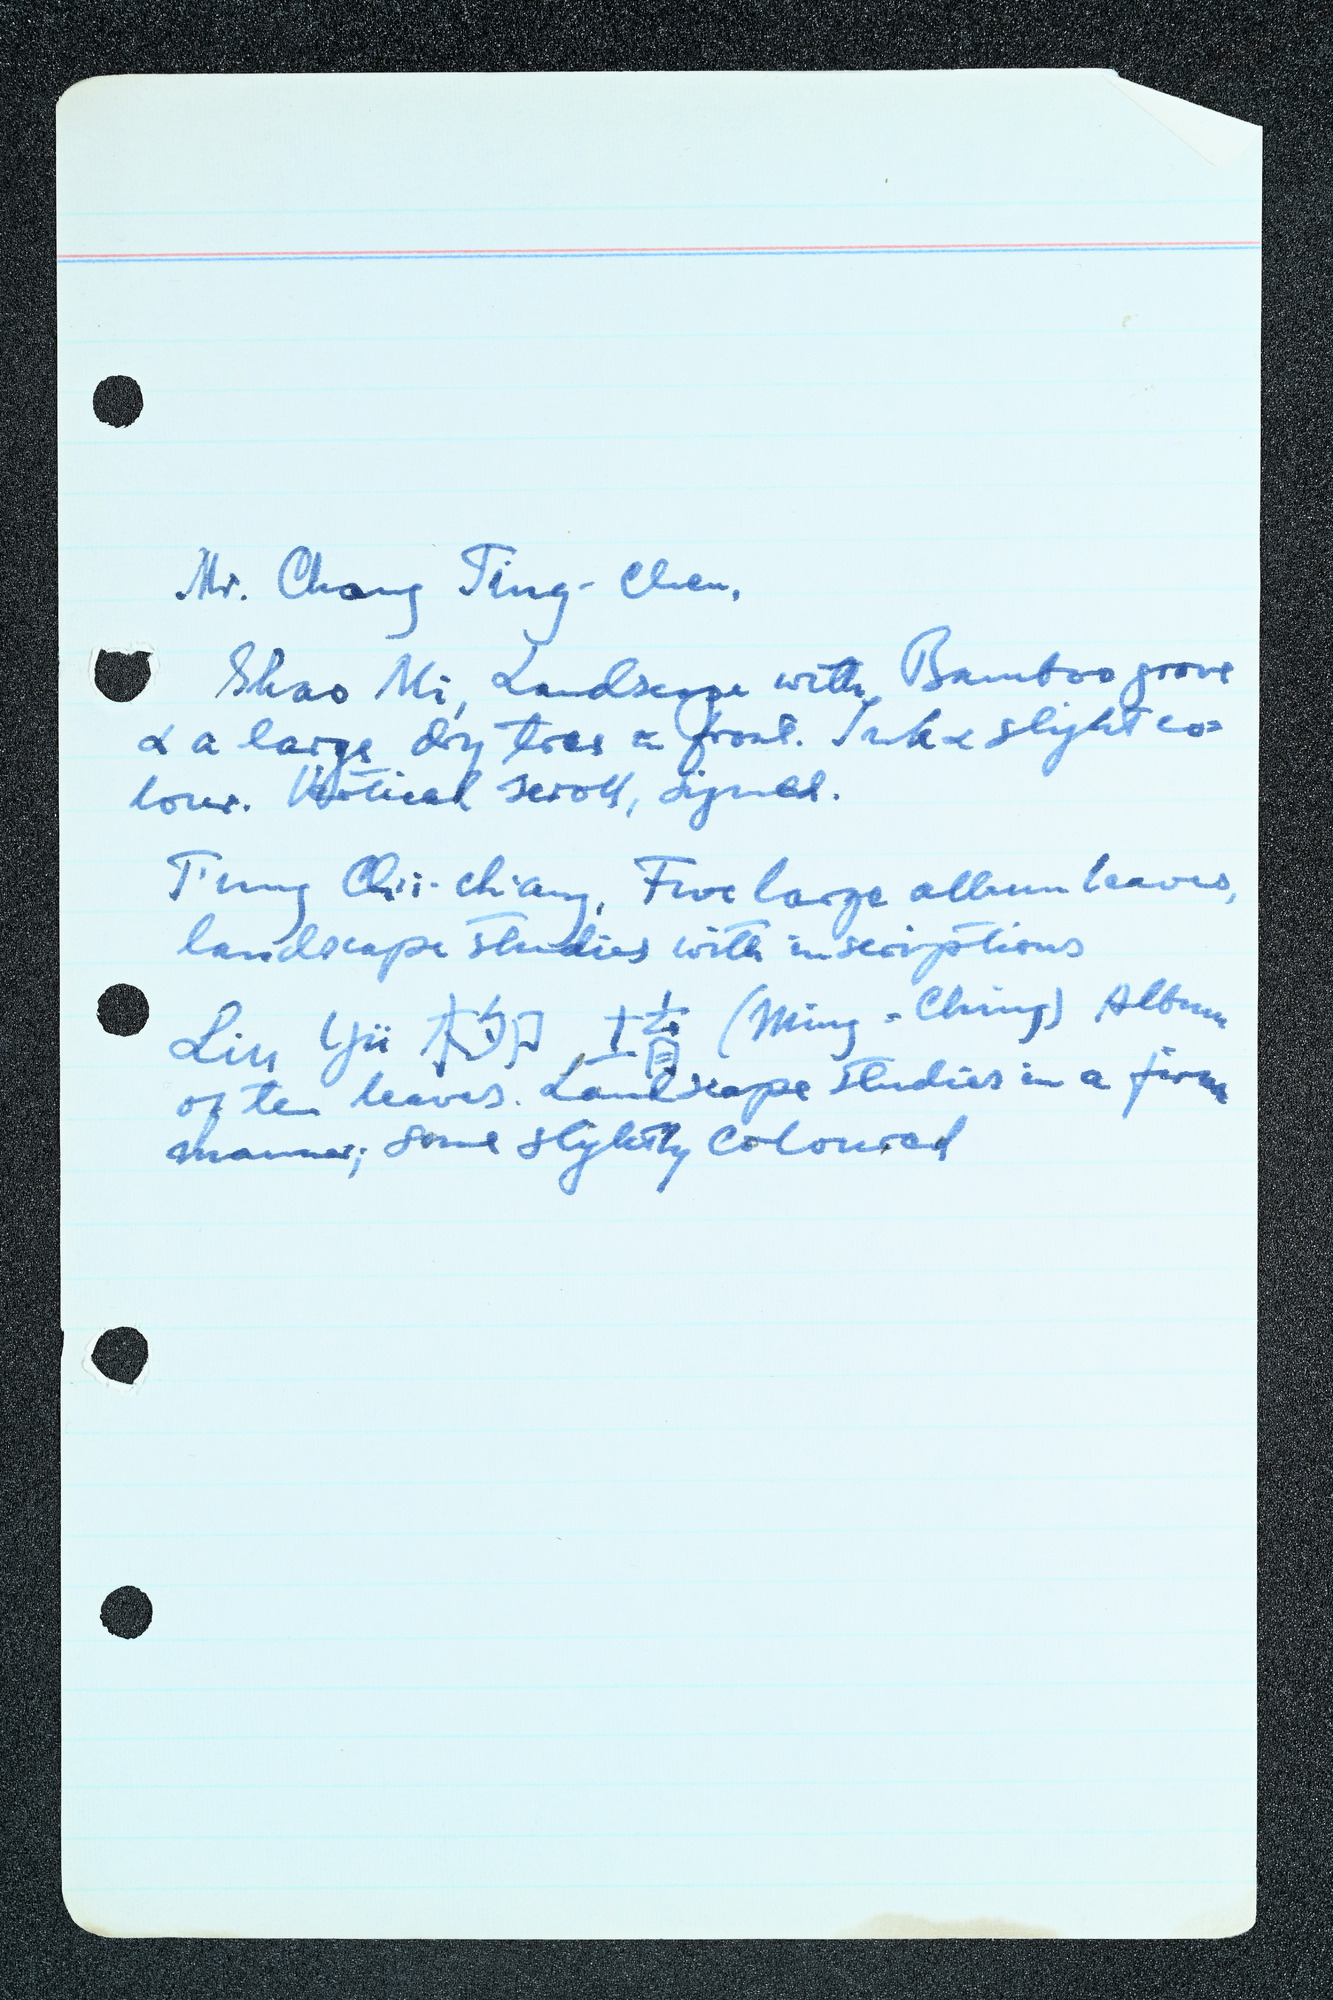 Mr. Chang Ting-chen,
Shao Mi, Landscape with Bamboo grove
& a large dry tree in front. Ink & slight co=
lour. Vertical scroll, signed.
Tung Ch'i-ch'ang, Five large album leaves,
landscape studies with inscriptions
Liu Yü 柳堉 (Ming-Ching) Album
of ten leaves. Landscape studies in a firm
manner; some slightly coloured